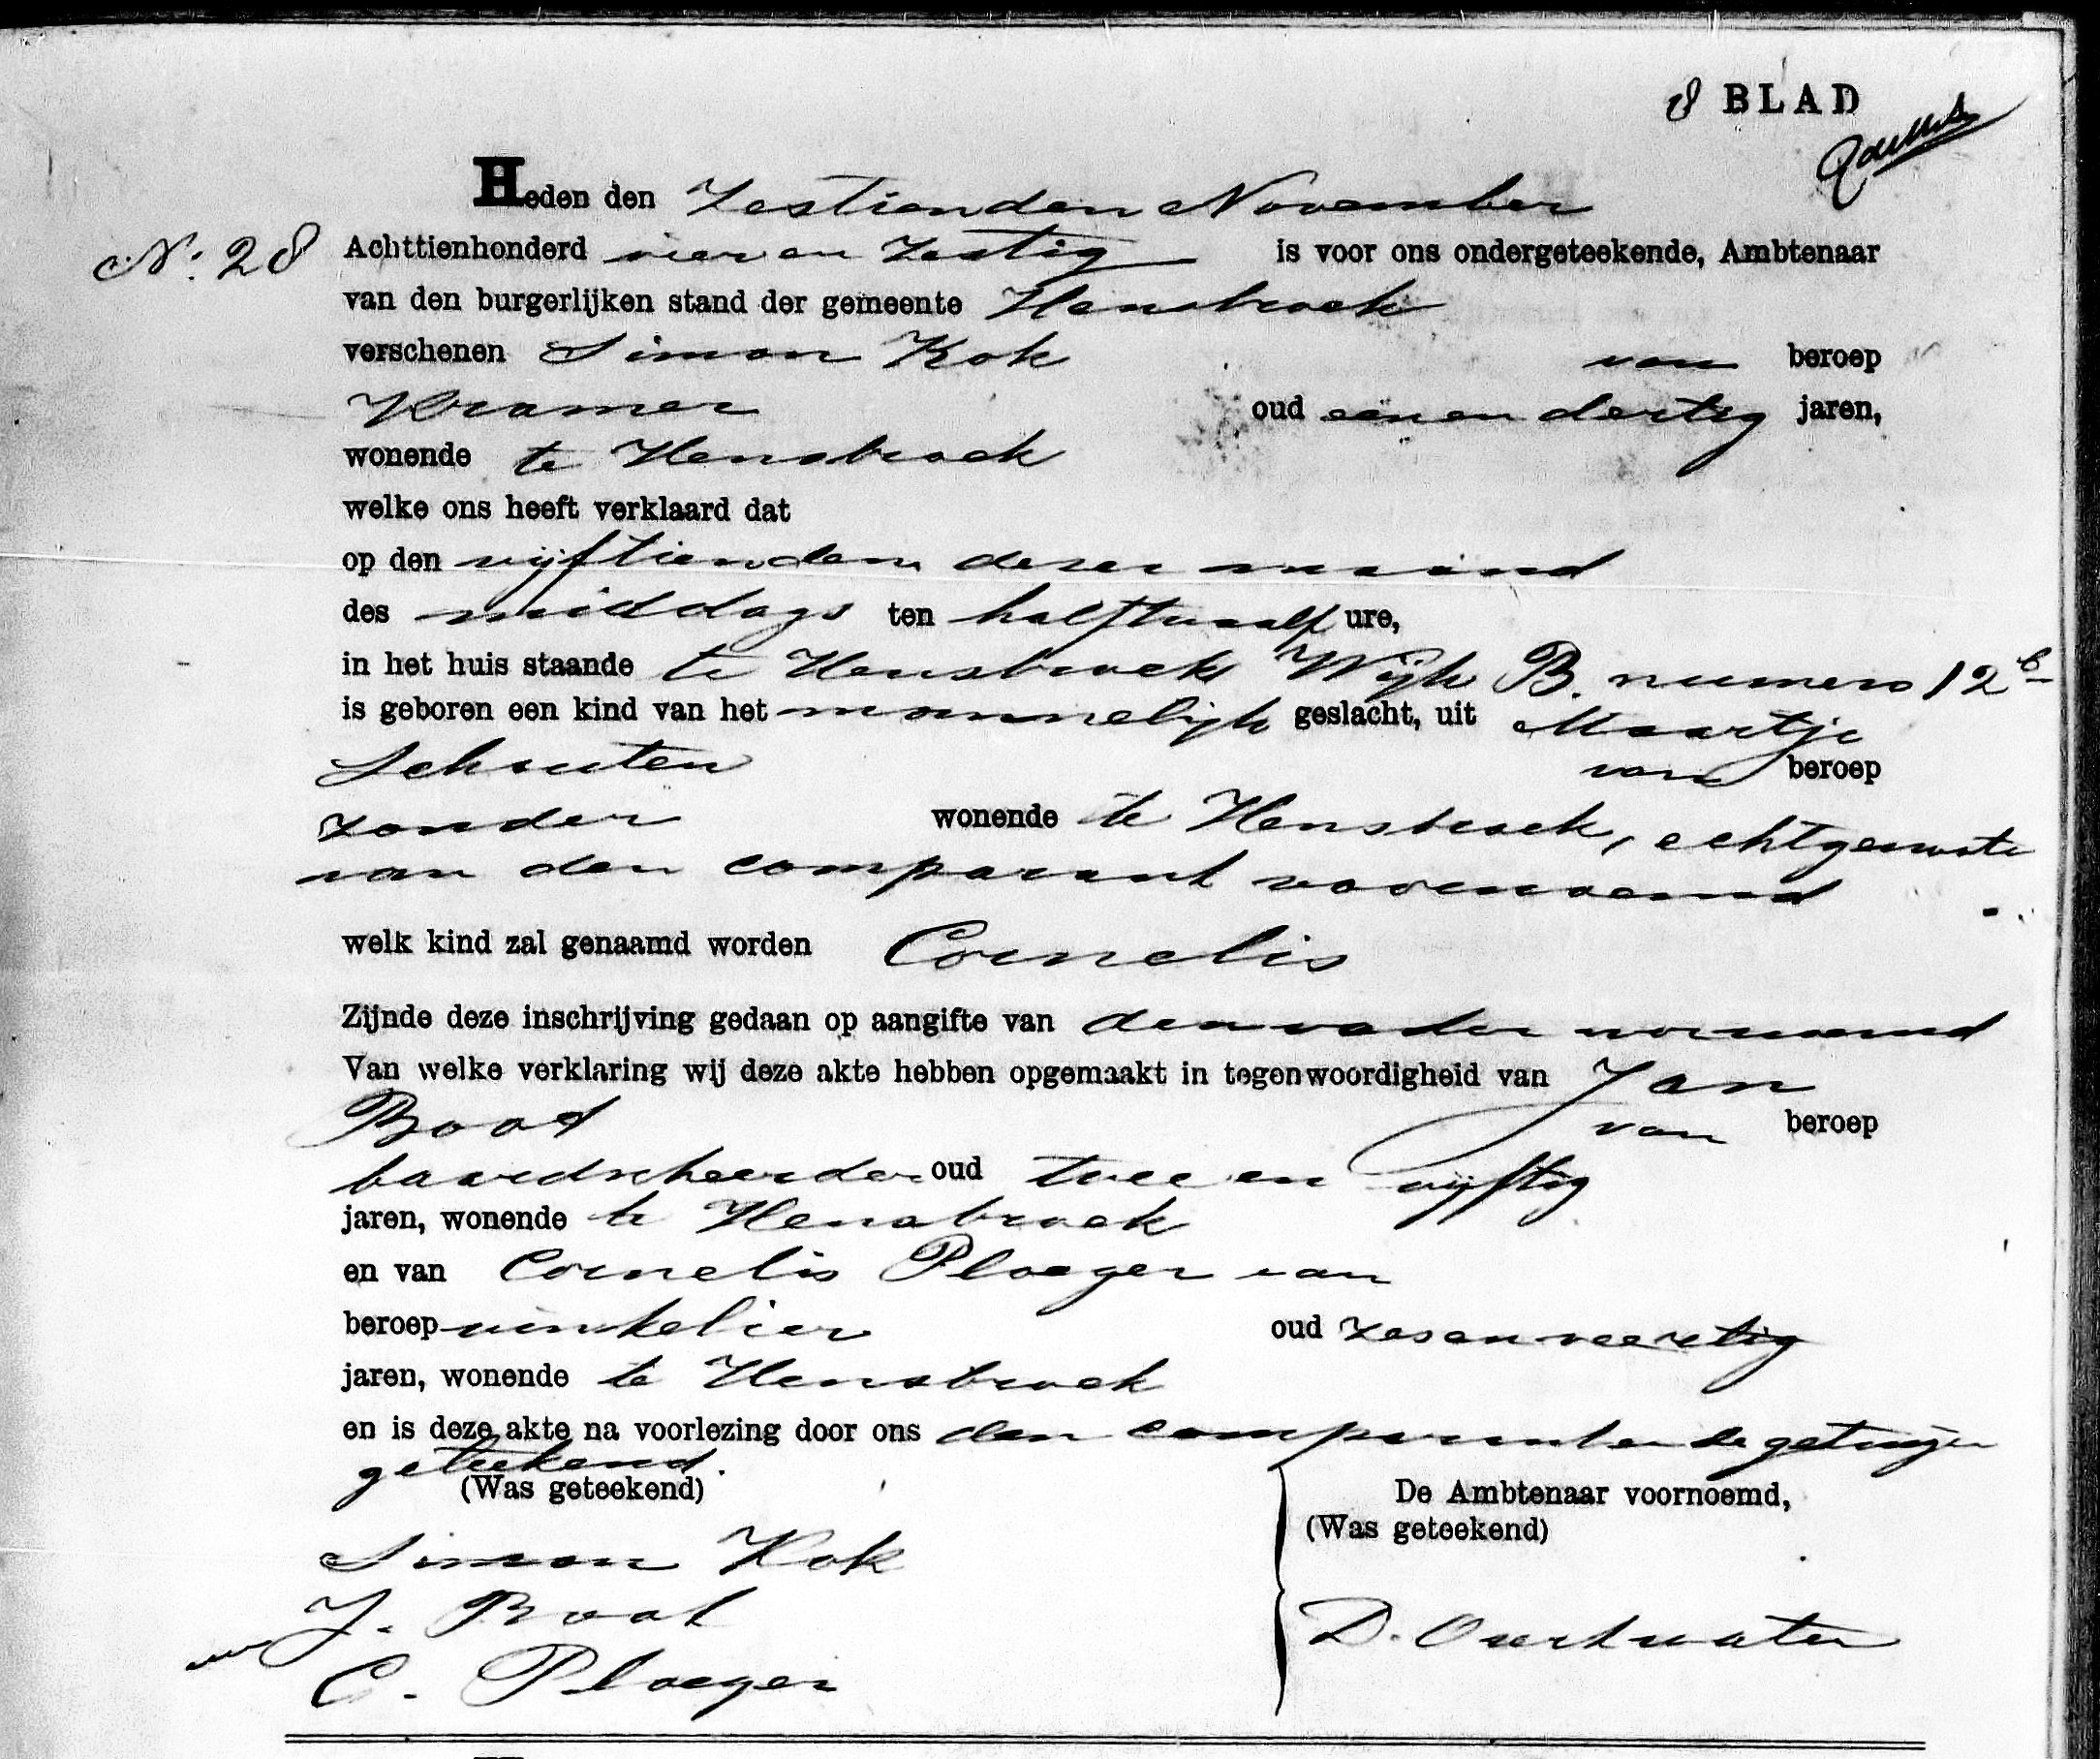 8 BLAD
Heden den Zestienden November
No. 28 Achttienhonderd vier en Zestig is voor ons ondergeteekende, Ambtenaar
van den burgerlijken stand der gemeente Hensbroek
verschenen Simon Kok van beroep
Kramer oud een en dertig jaren,
wonende te Hensbroek
welke ons heeft verklaard dat
op den vijftienden dezer maand
des middags ten half twaalf ure,
in het huis staande te Hensbroek Wijk B. numero 12b
is geboren een kind van het mannelijk geslacht, uit Maartje
Schouten van beroep
zonder wonende te Hensbroek, echtgenoote
van den comparant voornoemd
welk kind zal genaamd worden Cornelis
Zijnde deze inschrijving gedaan op aangifte van den vader voornoemd
Van welke verklaring wij deze akte hebben opgemaakt in tegenwoordigheid van Jan
Bood van beroep
baardscheerder oud twee en vijftig
jaren, wonende te Hensbroek
en van Cornelis Ploeger van
beroep winkelier oud zes en veertig
jaren, wonende te Hensbroek
en is deze akte na voorlezing door ons den comparant en de getuigen
geteekend.
(Was geteekend) De Ambtenaar voornoemd,
(Was geteekend)
Simon Kok
J. Bood D. Oudwater
C. Ploeger